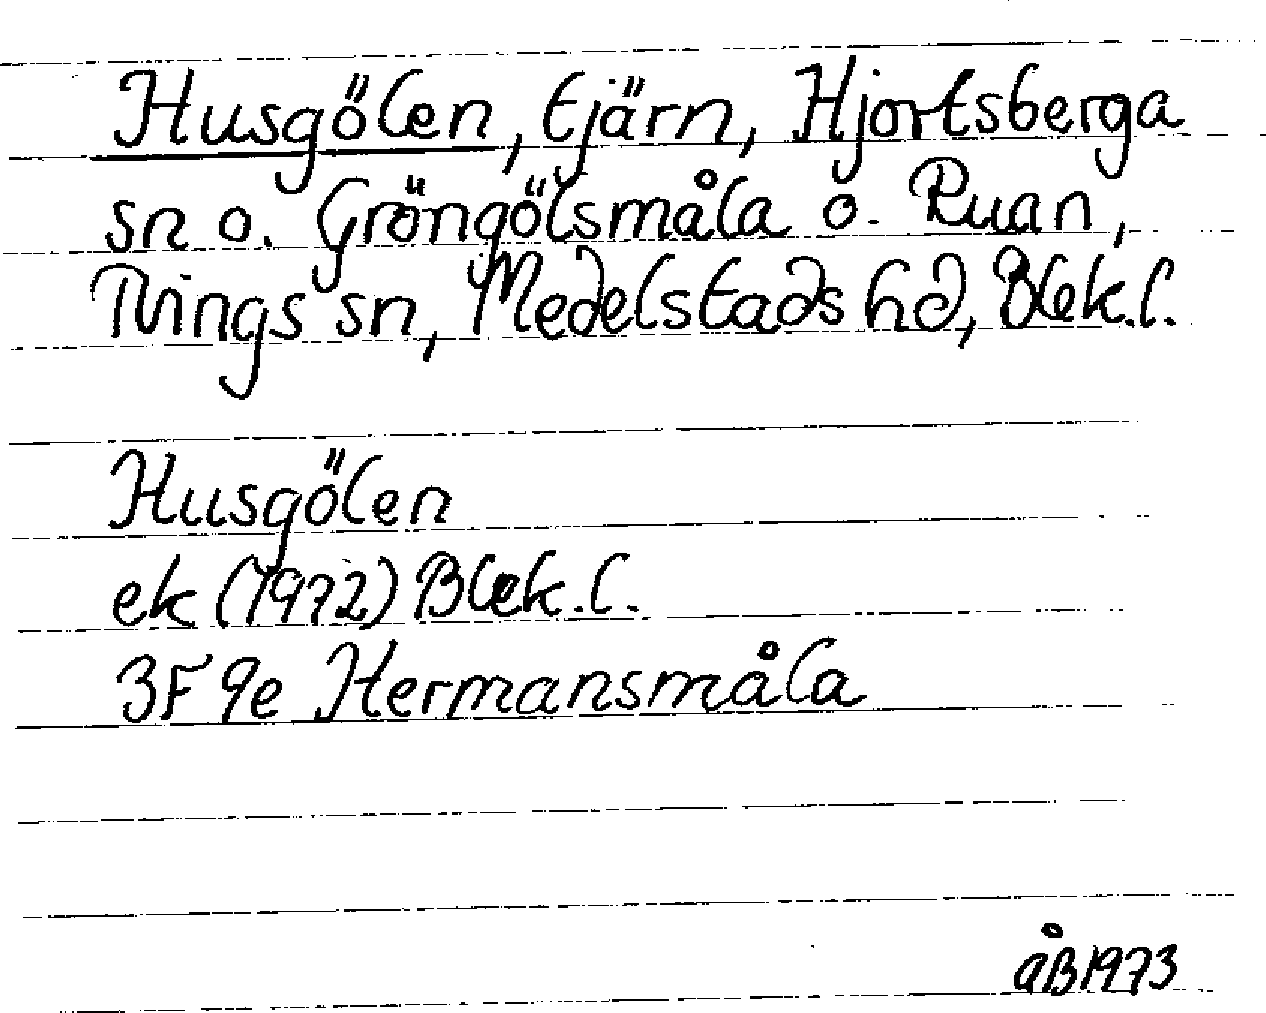 Husgölen, tjärn, Hjortsberga
sn o. Gröngölsmåla o. Ruan,
Tvings sn, Medelstads hd, Blek.l.
Husgölen
ek (1972) Blek.l.
3F 9e Hermansmåla
åB 1973